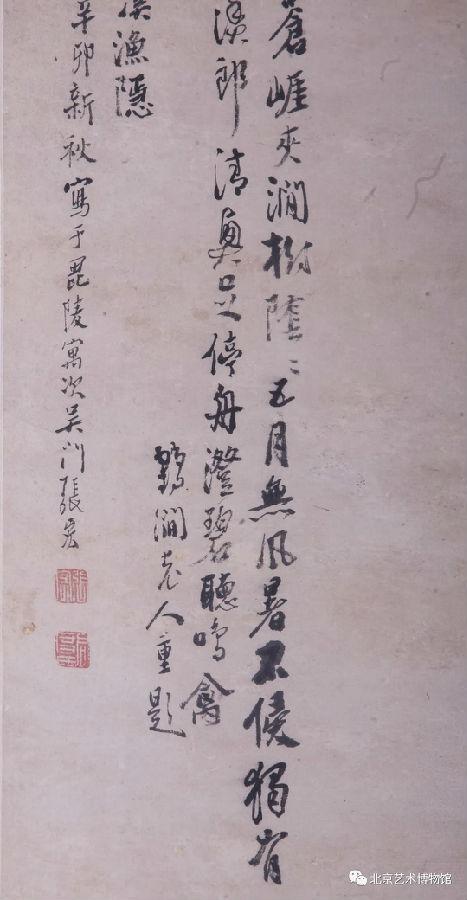 蒼崕夾澗樹陰〻五月無風暑不侵獨有
漁郎清興足停舟澄碧聽鳴禽
鶴澗老人重題
漁隱
辛卯新秋寫于毘陵寓次吳門張宏
北京艺术博物馆